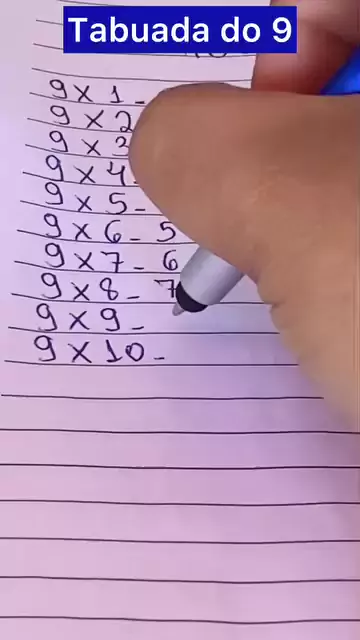 Tabuada do 9
9 x 1 -
9 x 2
9 x 3
9 x 4 -
9 x 5 -
9 x 6 - 5
9 x 7 - 6
9 x 8 - 7
9 x 9 -
9 x 10 -